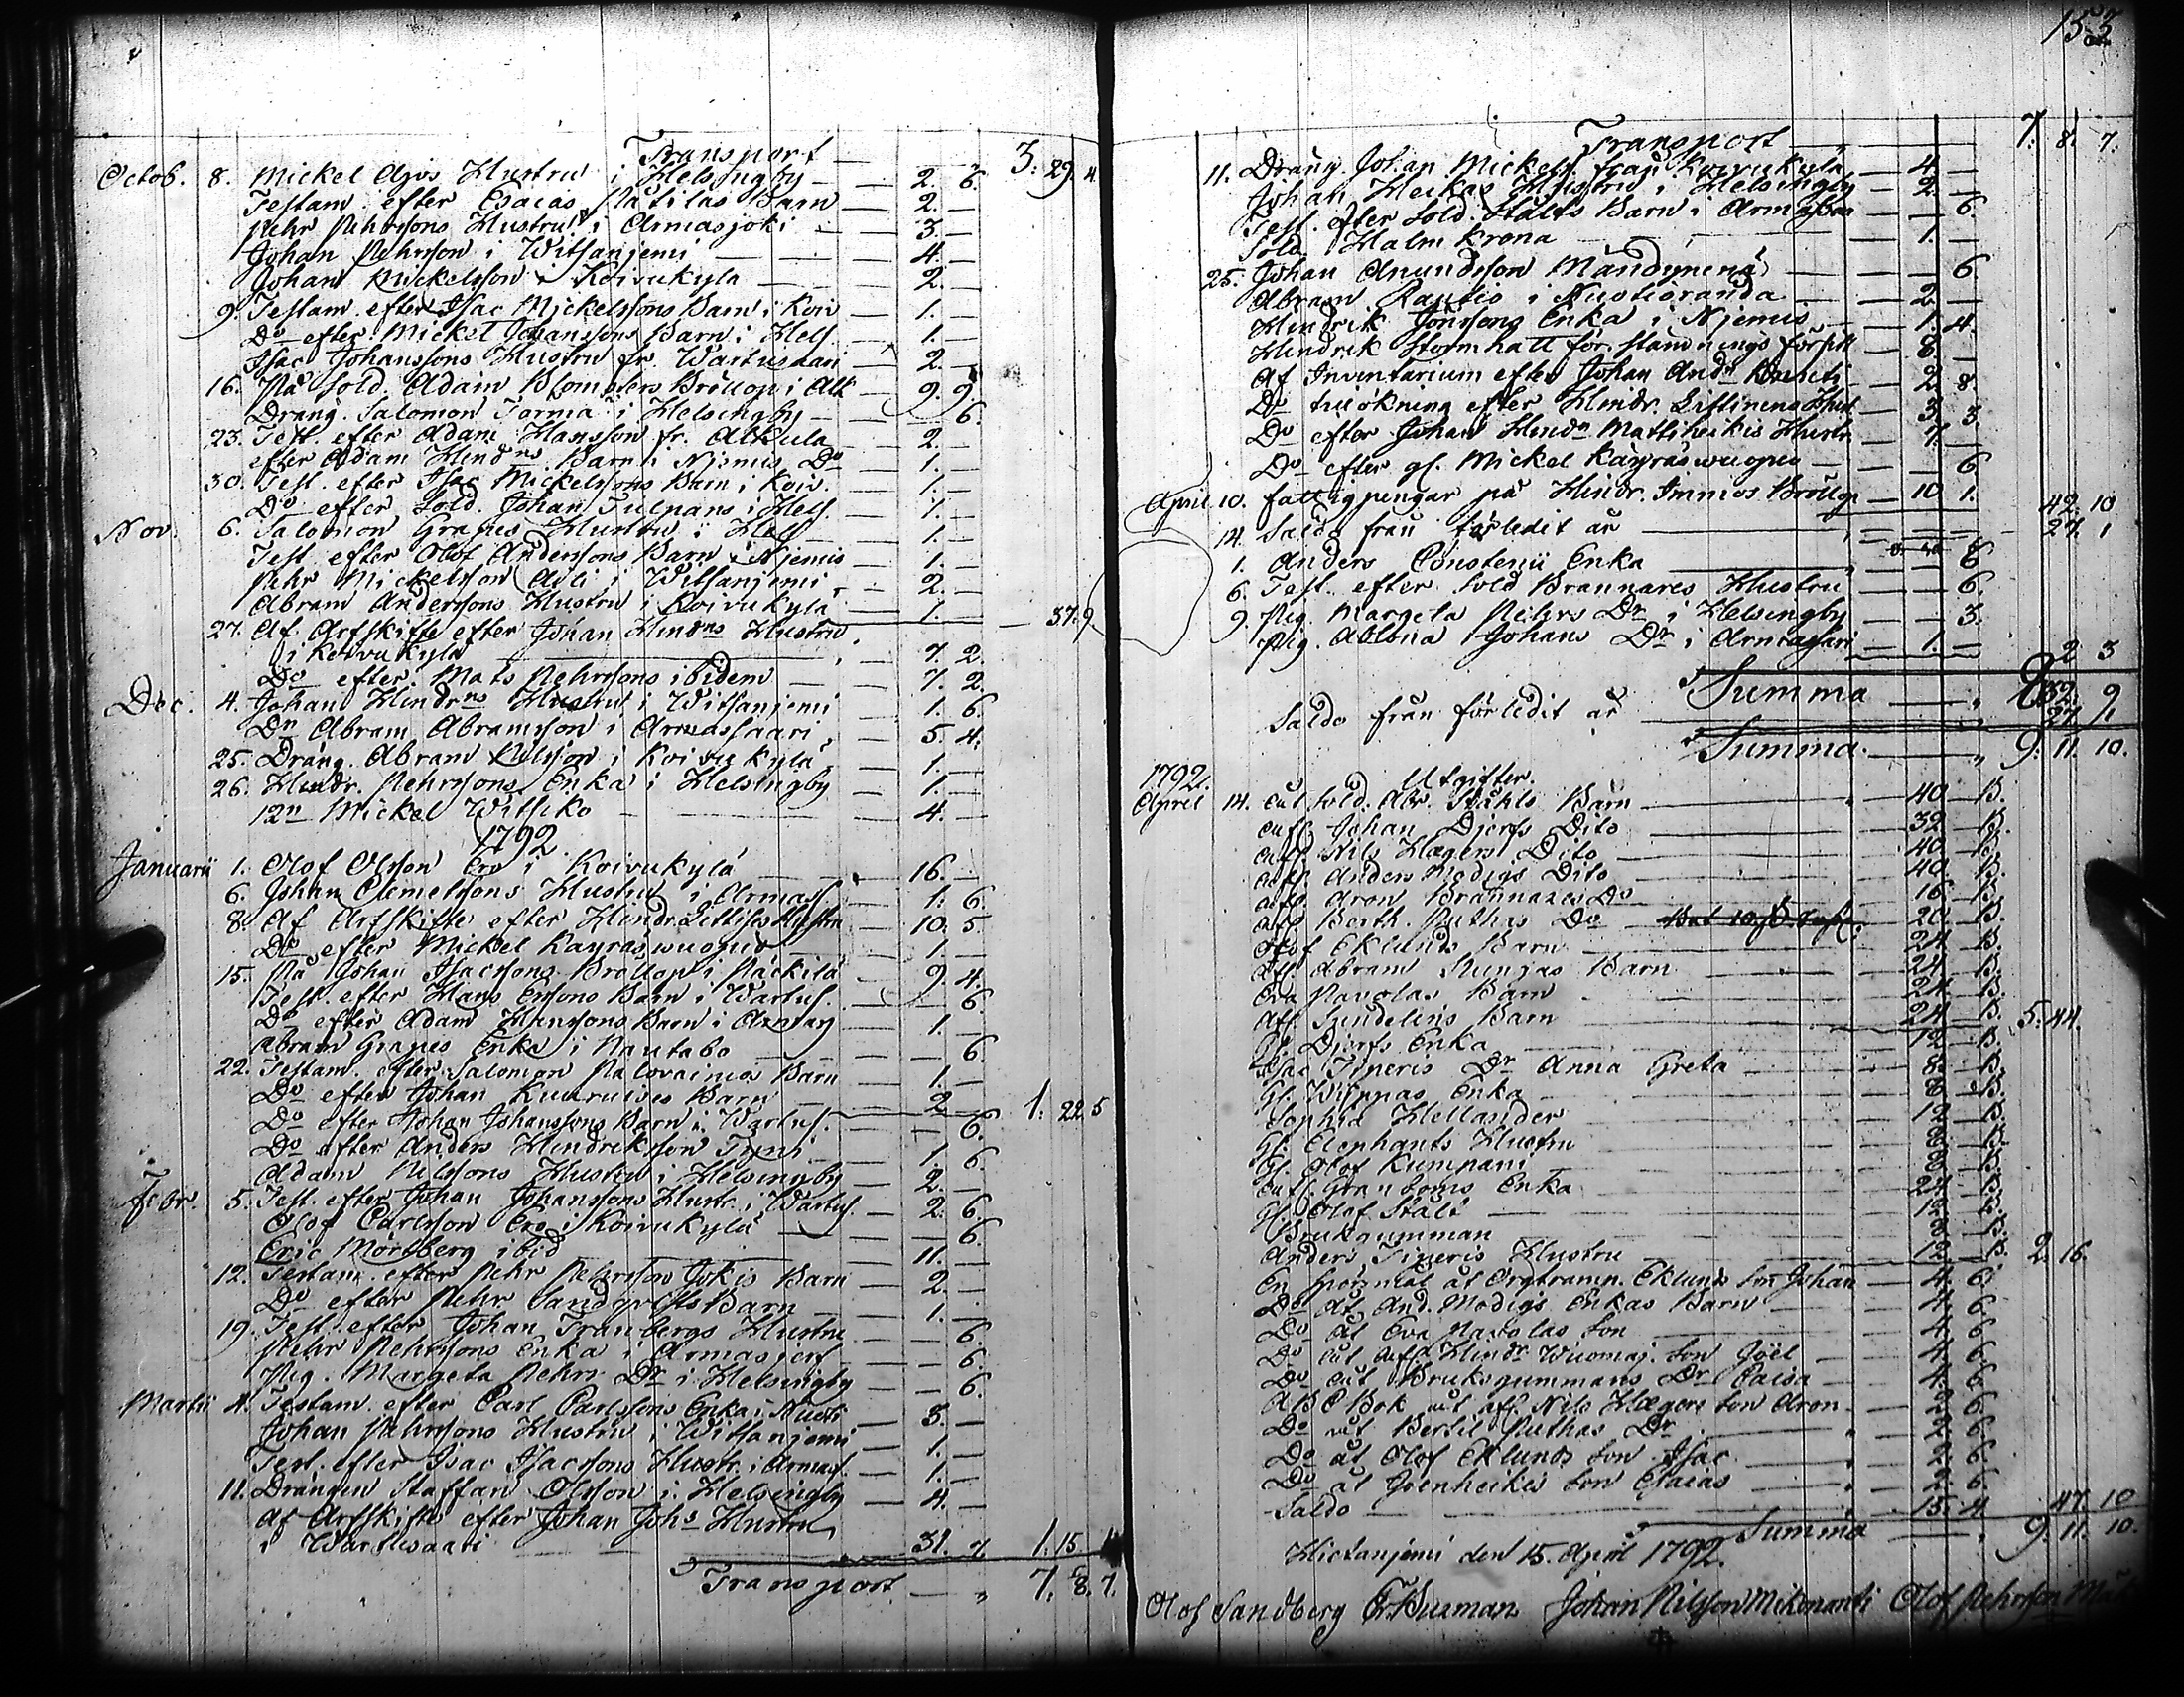 Transport — 3. 29. 4
Octob. 8. Mickel Ajos Hustru i Helsingby — 2. 6.
Testam. efter Esaias Barn — 2. —
Pehr Pehrssons Hustru i Armasjoki — 3. —
Johan Pehrsson i Witsanjemi — 4. —
Johan Mickelsson i Koivukyla — 2. —
9. Testam. efter Isac Mickelssons Barn i Koiv — 1. —
Do efter Mickel Johanssons Barn i Hels. — 1. —
Isac Johanssons Hustru fr. Wartusaari — 2. —
16. På Sold. Adam Blomsters Bröllop i Alk — 9. 9.
Dräng. Salomon Torma i Helsingby — 6.
23. Test. efter Adam Hansson fr. Alkula — 2. —
efter Adam Hindns Barn i Njemis Do — 1. —
30. Test. efter Isac Mickelssons Barn i Koiv. — 1. —
Do efter Sold. Johan Tulpans i Hels. — 1. —
Nov. 6. Salomon Grapes Hustru i Hels — 1. —
Test. efter Olof Anderssons Barn i Njemis — 1. —
Pehr Mickelsson i Witsanjemi — 2. —
Abram Anderssons Hustru i Koivukyla — 1. — 37. 9.
27. Af Arfskifte efter Johan Hindns Hustru
i Koivukyla — 7. 2.
Do efter Mats Pehrssons ibidem — 7. 2.
Dec. 4. Johan Hindrns Hustru i Witsanjemi — 1. 6.
Dn Abram Abramsson i Armassaari — 5. 4.
25. Dräng. Abram Nilsson i Koivukyla — 1. —
26. Hindr. Pehrssons Enka i Helsingby — 1. —
12n Mickel Witsiko — 4. —
1792
Januarii 1. Olof Olsson Ero i Koivukylä — 16. —
6. Johan Clemetssons Hustru i Armass — 1. 6.
8. Af Arfskifte efter Hindr. Hustru — 10. 5.
Do efter Mickel Kayraswuopio — 1. —
15. På Johan Isacssons Bröllop i Päckilä — 9. 4.
Test. efter Hans Ersons Barn i Wartus. — 6.
Do efter Adam Hanssons Barn i Armas — 1. —
Abram Grapes Enka i — 6.
22. Testam. efter Salomon Palovainios Barn — 1. —
Do efter Johan Barn — 2. 1. 22. 5
Do efter Johan Johanssons Barn i Wartus. — 6.
Do efter Anders Hindriksson — 1. 6.
Adam Nilssons Hustru i Helsingby — 2. —
Febr. 5. Test. efter Johan Johanssons Hustr. i Wartus. — 2. 6.
Olof Carlsson Ero i Koivukylä — 6.
Eric Mörtberg ibid — 11. —
12. Testam. efter Pehr Pehrsson Jokis Barn — 2. —
Do efter Pehr Sandqvists Barn — 1. —
19. Test. efter Johan Tranbergs Hustru — 6.
Pehr Pehrssons Enka i Armasjerf — 6.
Pig. Margeta Pehrs Dr i Helsingby — 6.
Martii 4. Testam. efter Carl Carlssons Enka i — 3. —
Johan Pehrssons Hustru i Witsanjemi — 1. —
Test. efter Isac Isacssons Hustr. i Armas. — 1. —
11. Drängen Staffan Olsson i Helsingby — 4. —
Af Arfskifte efter Johan Johs Hustru
i Wartusaari — 31. 7. 1. 15. 1
Transport — 7. 8. 7.
153
Transport — 7. 8. 7.
11. Dräng. Johan Mickelss. från Koivukyla — 4. —
Johan Heikas Hustru i Helsingby — 2. —
Test. efter Sold. Ståls Barn i Armassaa — 6.
Sold. Halm Krona — 1. —
25. Johan Anundsson Mandynenä — 6.
Abram Rautio i Ruotioranda — 2. —
Hindrik Jönssons Enka i Njemis — 1. 4.
Hindrik Stormhatt för stämnings — 8. —
Af Inventarium efter Johan Andn — 2. 8.
Do tillökning efter Hindr. — 3. 3.
Do efter Johan Hindn Mattiheikis Hustr. — 7. —
Do efter gl. Mickel Kayräswuopio — 6
April 10. fattigpengar på Hindr. Immos Bröllop — 10. 1. 42. 10
14. Saldo från förledit år — 27. 1
1. Anders Consteni Enka — 6
6. Test. efter Sold Brannares Hustru — 6.
9. Pig. Margeta Pehrs Dr i Helsingby — 3.
Pig. Johans Dr i Armassari — 1. — 2 3
Summa — 8. 32. 9
Saldo från förledit år — 27. 1.
Summa — 9. 11. 10.
1792. Utgifter.
April 14. åt Sold. Abr. Ståhls Barn — 40 — B.
Johan Djerfs Dito — 32 — B.
Nils Hægers Dito — 40 — B.
Anders Modigs Dito — 40. B.
Aron Brannares Do — 16 — B.
Berth. Puthas Do — 20 — B.
Olof Eklunds Barn — 24 B.
Abram Barn — 24 B.
Eva Pavolas Barn — 24 — B.
Sundelins Barn — 24 B. 5. 44.
Djerfs Enka — 12 — B.
Isac Dr Anna Greta — 8 — B.
Gl. Enka — 8 — B.
Sophia Hellander — 12 — B.
Gl. Elephants Hustru — 8 — B.
Gl. Olof Kumpani — 8 — B.
Granboms Enka — 24 — B.
Gl. Olof Stålt — 12 — B.
Bruksgumman — 8 — B.
Anders Hustru — 12 — B. 2. 16.
En åt Eklunds Son Johan — 4. 6.
Do åt And. Modigs Enkas Barn — 4. 6.
Do åt Eva Pavolas Son — 4. 6
Do åt Hindr Wuomaj. Son Joel — 4. 6
Do åt Bruksgummans Dr Caisa — 4. 6
ABC Bok åt Nils Hægers Son Aron — 2. 6.
Do åt Bertil Puthas Dr — 2. 6.
Do åt Olof Eklunds Son Isac — 2. 6.
Do åt Joenheikis Son Esaias — 2. 6.
Saldo — 15. 4. 47. 10
Summa — 9. 11. 10.
Hietanjemi den 15. April 1792.
Olof Sandberg Johan Nilsson Mikonanti Olof Pehrsson